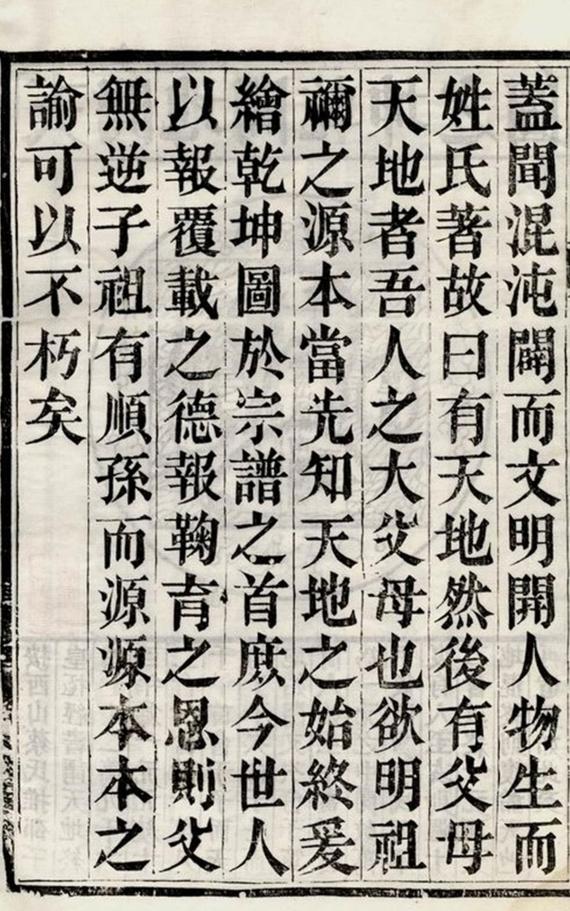 蓋聞混沌闢而文明開人物生而
姓氏著故曰有天地然後有父母
天地者吾人之大父母也欲明祖
禰之源本當先知天地之始終爰
繪乾坤圖於宗譜之首庶今世人
以報覆載之德報鞠育之恩則父
無逆子祖有順孫而源源本本之
諭可以不朽矣